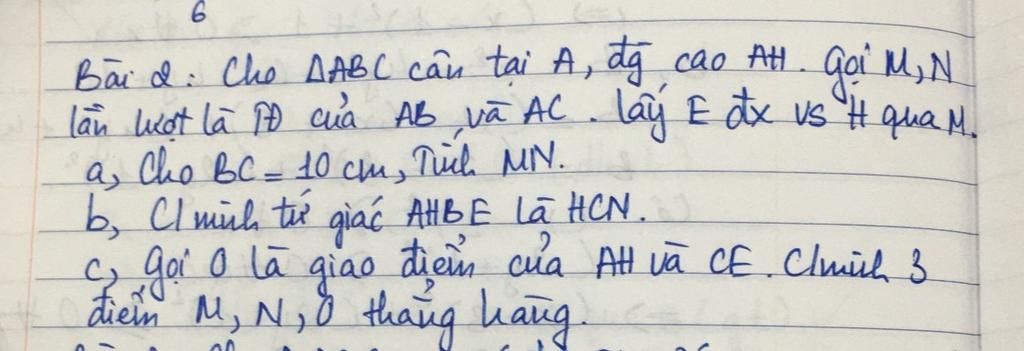 6
Bài 2: Cho ΔABC cân tại A, đg cao AH. Gọi M, N
lần lượt là TĐ của AB và AC. Lấy E đx vs H qua M.
a, Cho BC = 10 cm, Tính MN.
b, C/minh tứ giác AHBE là HCN.
c, Gọi O là giao điểm của AH và CE. C/minh 3
điểm M, N, O thẳng hàng.